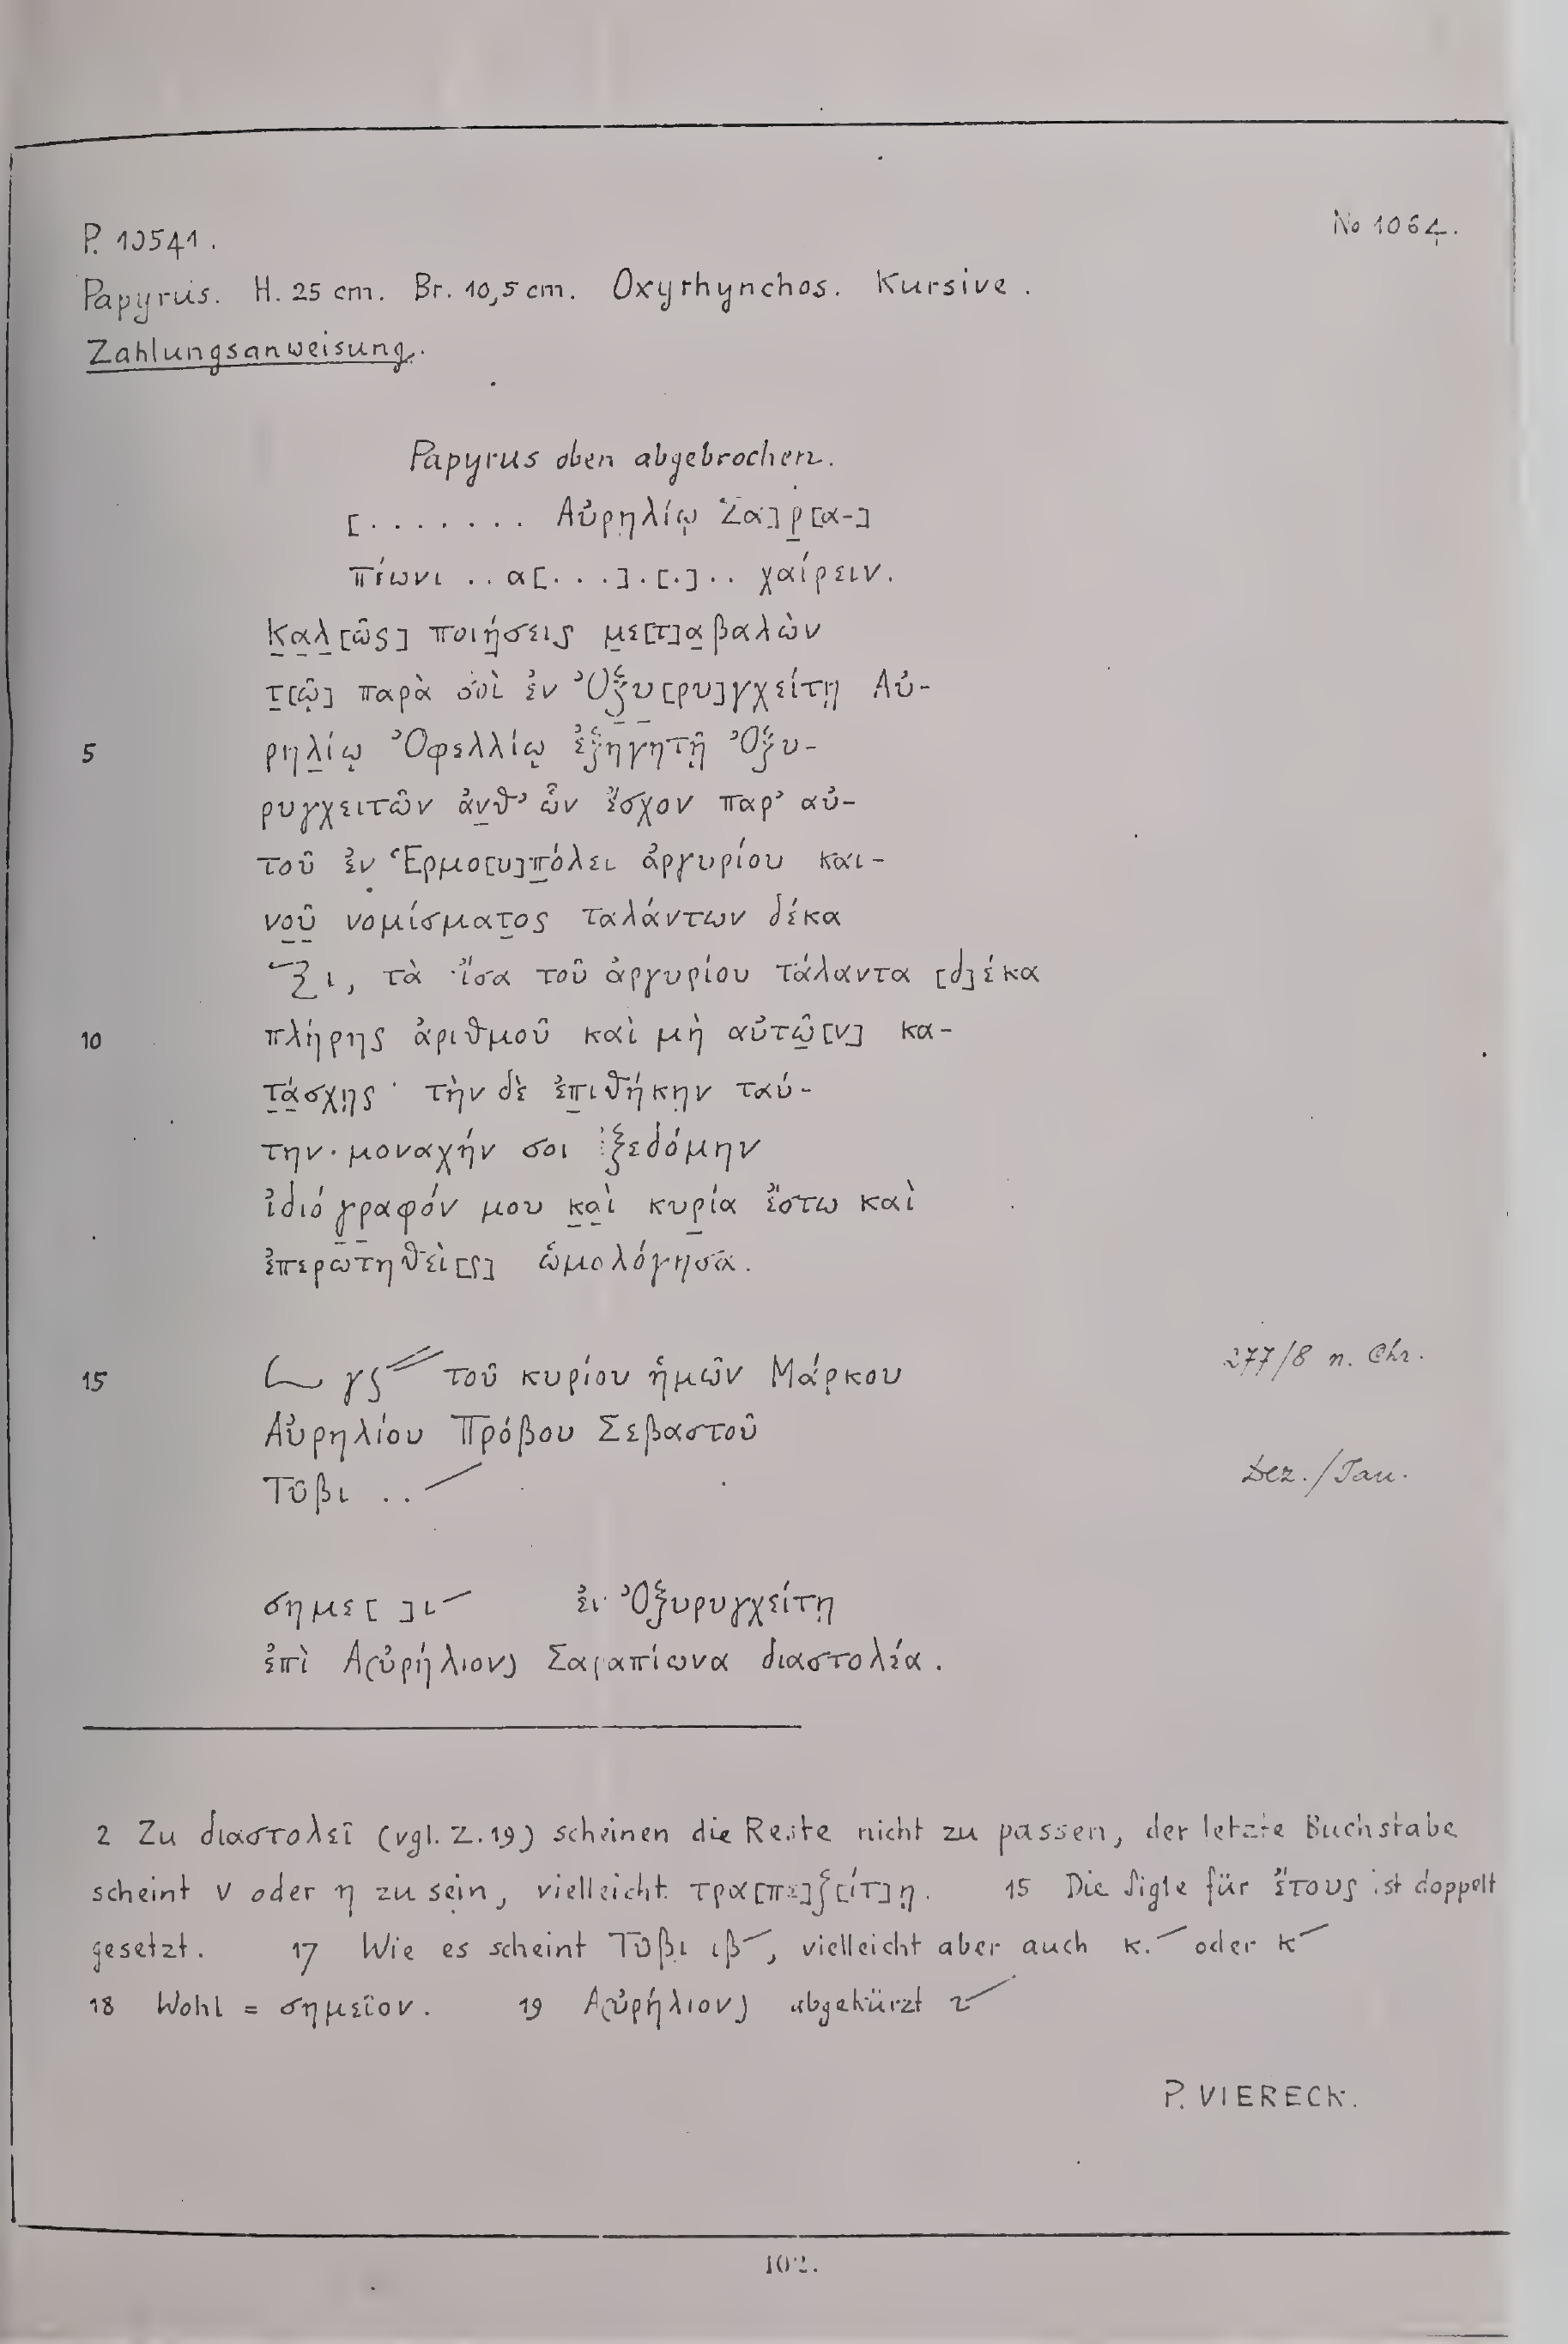 No 1064.
P. 10541.
Papyrus. H. 25 cm. Br. 10,5 cm. Oxyrhynchos. Kursive.
Zahlungsanweisung.
Papyrus oben abgebrochen.
[. . . . . . . Αὐρηλίῳ Σα]ρ̣[α-]
πίωνι . . α[. . .] . [.] . . χαίρειν.
Κ̣α̣λ̣[ῶς] ποιή̣σεις μ̣ε[τ]α̣βαλὼν
τ̣[ῷ] παρὰ σοὶ ἐν Ὀξ̣υ̣[ρυ]γχείτῃ Αὐ-
5 ρηλ̣ίῳ Ὀφελλίῳ ἐξηγητῇ Ὀξυ-
ρυγχειτῶν ἀν̣θ’ ὧν ἔσχον παρ’ αὐ-
τοῦ ἐν Ἑρμο[υ]π̣όλει ἀργυρίου και-
νο̣ῦ̣ νομίσματ̣ος ταλάντων δέκα
ι, τὰ ἴσα τοῦ ἀργυρίου τάλαντα [δ]έκα
10 πλήρης ἀριθμοῦ καὶ μὴ αὐτῶ̣[ν] κα-
τ̣ά̣σχῃς· τὴν δὲ ἐπ̣ιθήκην ταύ-
την · μοναχήν σοι ἐξεδόμην
ἰδιόγ̣ρ̣αφόν μου κ̣α̣ὶ κυρ̣ία ἔστω καὶ
ἐπερωτηθεὶ[ς] ὡμολόγησα.
15 L γς τοῦ κυρίου ἡμῶν Μάρκου 277/8 n. Chr.
Αὐρηλίου Πρόβου Σεβαστοῦ
Τῦβι . . Dez./Jan.
σημε[ ]ι ἐν Ὀξυρυγχείτῃ
ἐπὶ Α(ὐρήλιον) Σαραπίωνα διαστολέα.
2 Zu διαστολεῖ (vgl. Z. 19) scheinen die Reste nicht zu passen, der letzte Buchstabe
scheint ν oder η zu sein, vielleicht τρα[πε]ζ[ίτ]ῃ. 15 Die Sigle für ἔτους ist doppelt
gesetzt. 17 Wie es scheint Τῦβι ιβ, vielleicht aber auch κ. oder κ
18 Wohl = σημεῖον. 19 Α(ὐρήλιον) abgekürzt
P. VIERECK.
102.